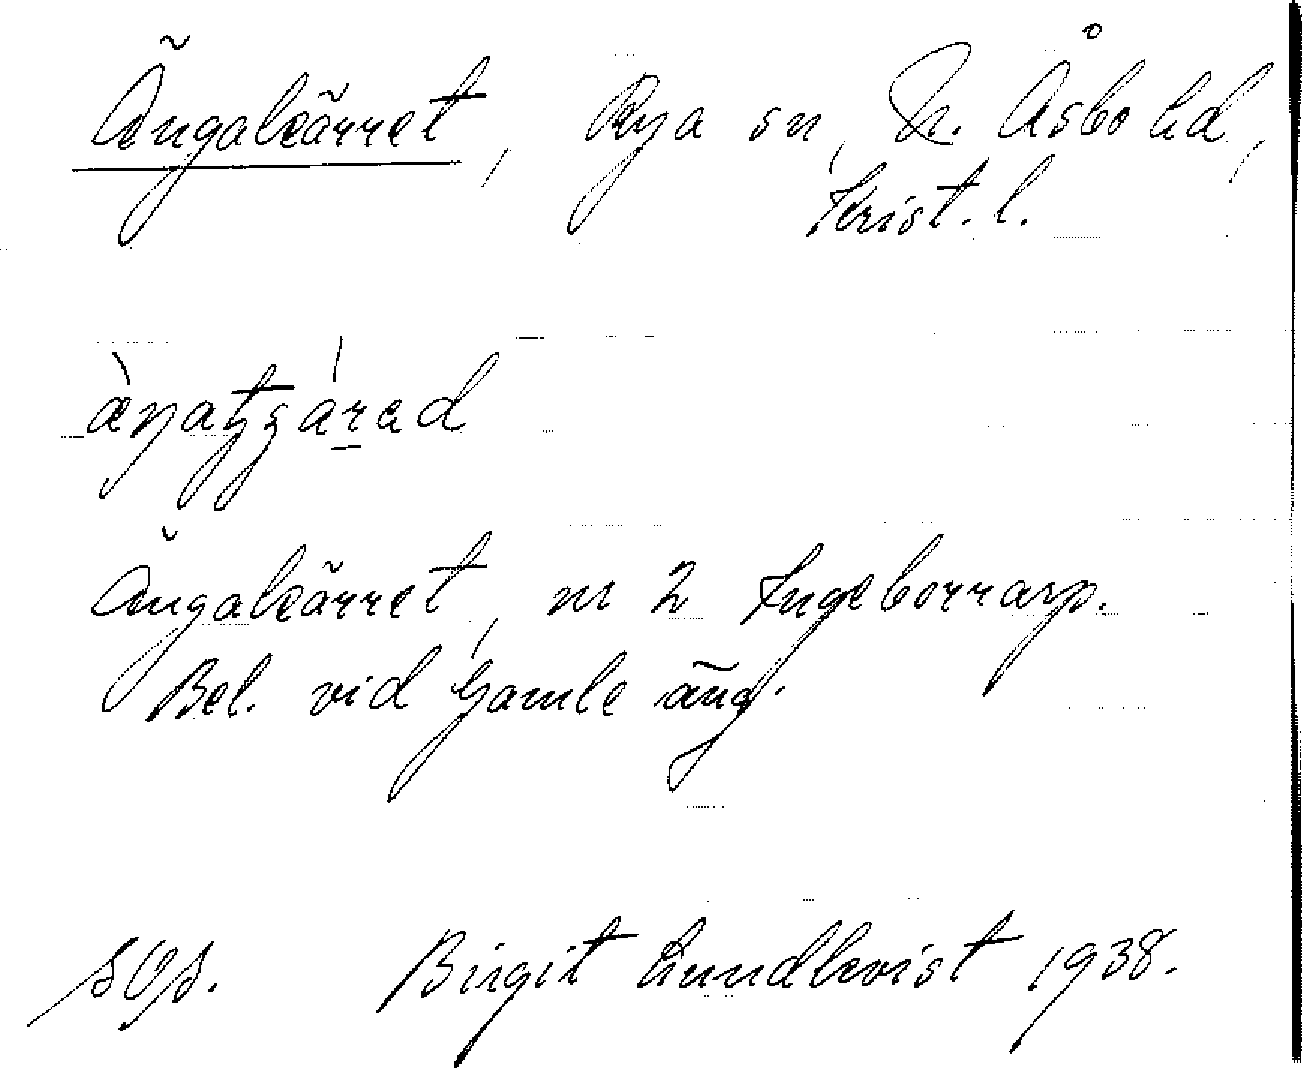 Ängakärret, Rya sn, N. Åsbo hd,
Krist. l.
Ängakärret, nr 2 Ingeborrarp.
Bel. vid Gamle äng.
Birgit Lundkvist 1938.